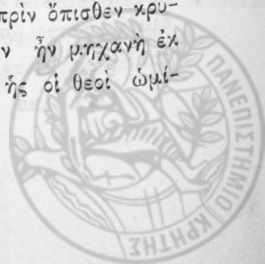 πρὶν ὄπισθεν κρυ-
ν ἦν μηχανὴ ἐκ
ἧς οἱ θεοὶ ὡμί-
ΠΑΝΕΠΙΣΤΗΜΙΟ ΚΡΗΤΗΣ